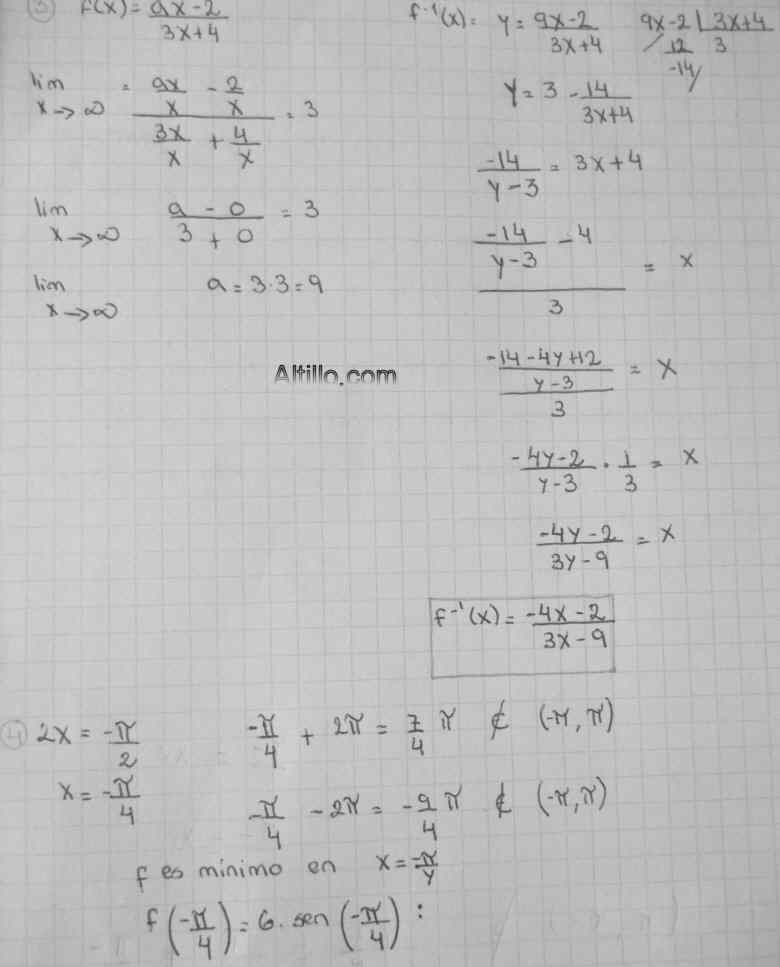 ③ f(x) = ax-2 / 3x+4
lim x→∞ = (ax/x - 2/x) / (3x/x + 4/x) = 3
lim x→∞ (a - 0) / (3 + 0) = 3
lim x→∞ a = 3·3 = 9
f⁻¹(x) = y = 9x-2 / 3x+4
9x-2 | 3x+4
12 3
-14
y = 3 - 14 / 3x+4
-14 / y-3 = 3x+4
(-14 / y-3 - 4) / 3 = x
((-14-4y+12) / (y-3)) / 3 = x
-4y-2 / y-3 · 1/3 = x
-4y-2 / 3y-9 = x
f⁻¹(x) = -4x-2 / 3x-9
Altillo.com
④ 2x = -π/2
x = -π/4
-π/4 + 2π = 7/4 π ∉ (-π, π)
-π/4 - 2π = -9/4 π ∉ (-π, π)
f es mínimo en x = -π/4
f(-π/4) = 6. sen (-π/4) :